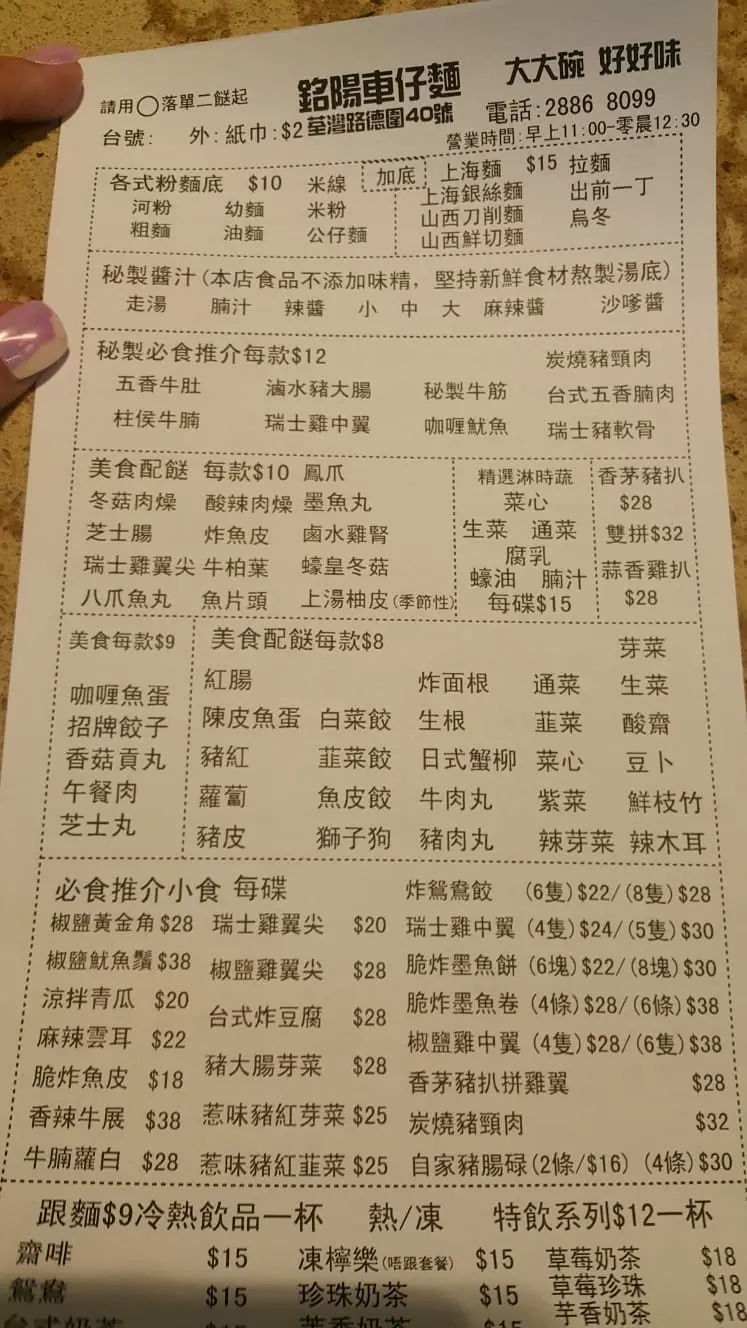 請用○落單二餸起
銘陽車仔麵
大大碗 好好味
台號: 外:紙巾:$2
荃灣路德圍40號
電話:2886 8099
營業時間:早上11:00-零晨12:30
各式粉麵底 $10 米線
河粉 幼麵 米粉
粗麵 油麵 公仔麵
加底
上海麵 $15 拉麵
上海銀絲麵 出前一丁
山西刀削麵 烏冬
山西鮮切麵
秘製醬汁(本店食品不添加味精，堅持新鮮食材熬製湯底)
走湯 腩汁 辣醬 小 中 大 麻辣醬 沙嗲醬
秘製必食推介每款$12 炭燒豬頸肉
五香牛肚 滷水豬大腸 秘製牛筋 台式五香腩肉
柱侯牛腩 瑞士雞中翼 咖喱魷魚 瑞士豬軟骨
美食配餸 每款$10 鳳爪
冬菇肉燥 酸辣肉燥 墨魚丸
芝士腸 炸魚皮 鹵水雞腎
瑞士雞翼尖 牛柏葉 蠔皇冬菇
八爪魚丸 魚片頭 上湯柚皮(季節性)
精選淋時蔬
菜心
生菜 通菜
腐乳
蠔油 腩汁
每碟$15
香茅豬扒
$28
雙拼$32
蒜香雞扒
$28
美食每款$9
咖喱魚蛋
招牌餃子
香菇貢丸
午餐肉
芝士丸
美食配餸每款$8 芽菜
紅腸 炸面根 通菜 生菜
陳皮魚蛋 白菜餃 生根 韮菜 酸齋
豬紅 韮菜餃 日式蟹柳 菜心 豆卜
蘿蔔 魚皮餃 牛肉丸 紫菜 鮮枝竹
豬皮 獅子狗 豬肉丸 辣芽菜 辣木耳
必食推介小食 每碟
椒鹽黃金角 $28
椒鹽魷魚鬚 $38
涼拌青瓜 $20
麻辣雲耳 $22
脆炸魚皮 $18
香辣牛展 $38
牛腩蘿白 $28
瑞士雞翼尖 $20
椒鹽雞翼尖 $28
台式炸豆腐 $28
豬大腸芽菜 $28
惹味豬紅芽菜 $25
惹味豬紅韮菜 $25
炸鴛鴦餃 (6隻)$22/(8隻)$28
瑞士雞中翼 (4隻)$24/(5隻)$30
脆炸墨魚餅 (6塊)$22/(8塊)$30
脆炸墨魚卷 (4條)$28/(6條)$38
椒鹽雞中翼 (4隻)$28/(6隻)$38
香茅豬扒拼雞翼 $28
炭燒豬頸肉 $32
自家豬腸碌(2條/$16) (4條)$30
跟麵$9冷熱飲品一杯 熱/凍 特飲系列$12一杯
齋啡 $15 凍檸樂(唔跟套餐) $15 草莓奶茶 $18
鴛鴦 $15 珍珠奶茶 $15 草莓珍珠 $18
台式奶茶 芋香奶茶 $18